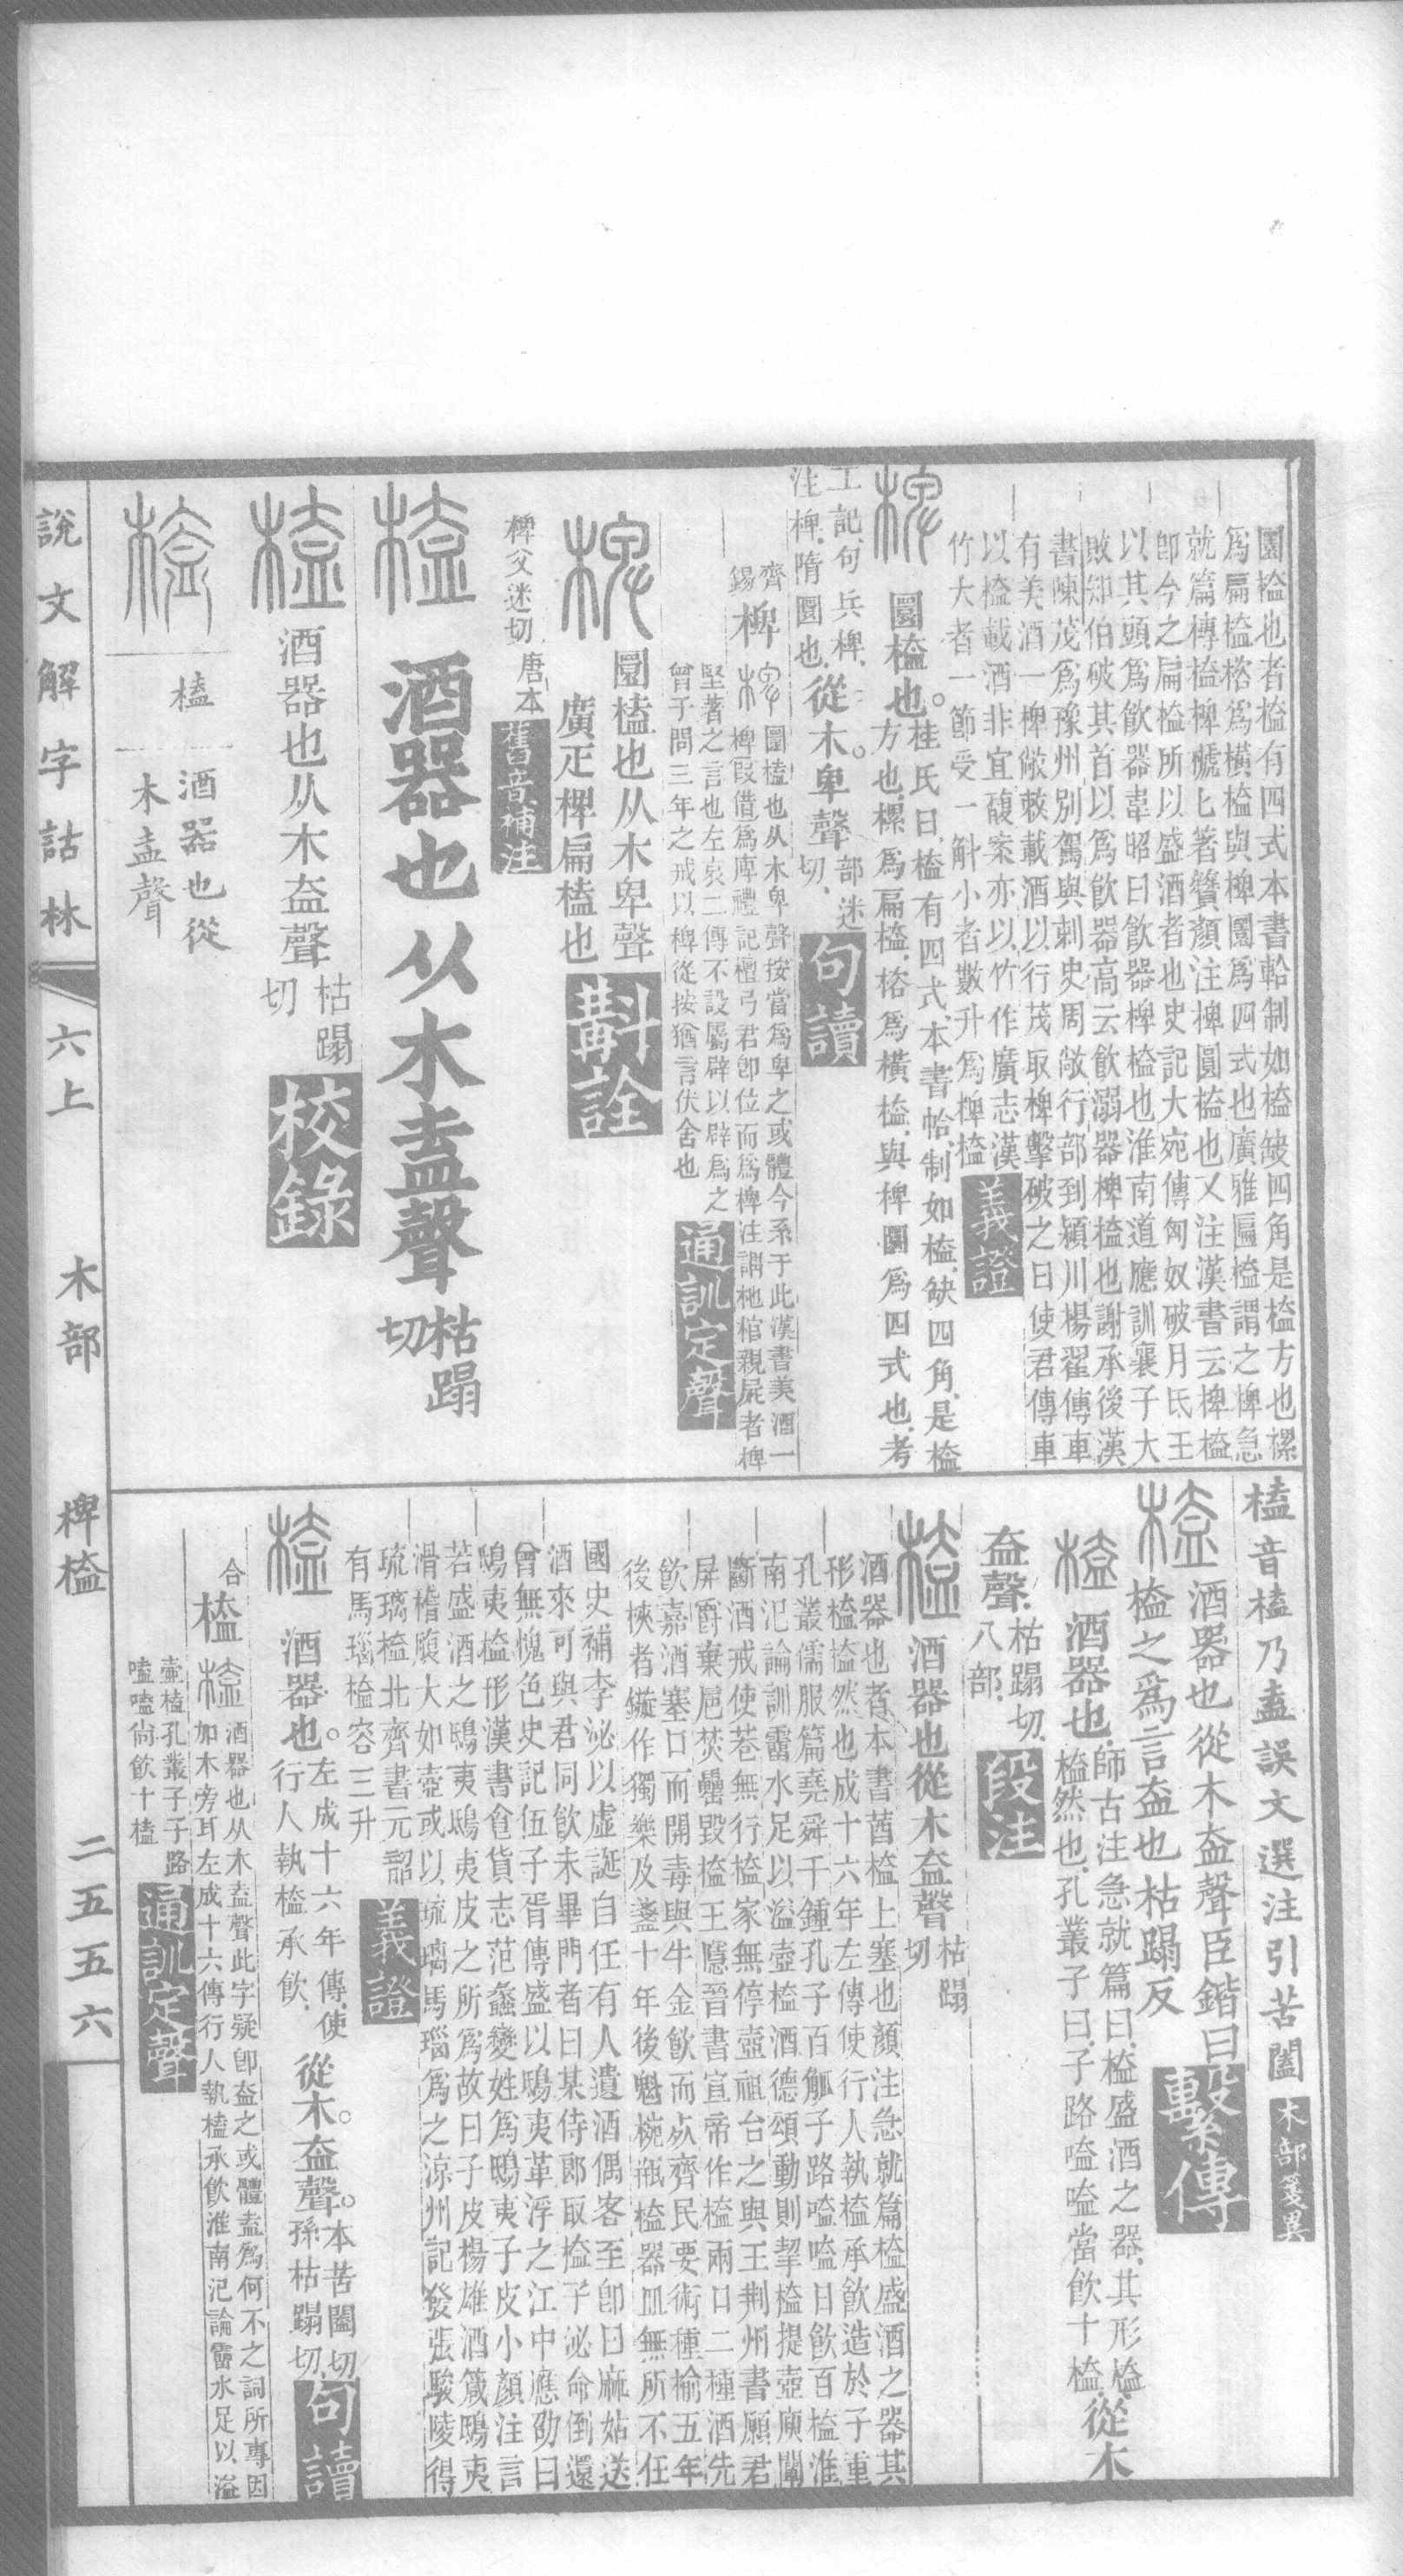 圜榼也者榼有四式本書䡊制如榼缺四角是榼方也樏
爲扁榼㭘爲橫榼與椑圜爲四式也廣雅匾榼謂之椑急
就篇槫榼椑榹匕箸籫顏注椑圓榼也又注漢書云椑榼
卽今之扁榼所以盛酒者也史記大宛傳匈奴破月氏王
以其頭爲飮器韋昭曰飮器椑榼也淮南道應訓襄子大
敗知伯破其首以爲飮器高云飮溺器椑榼也謝承後漢
書陳茂爲豫州別駕與刺史周敞行部到潁川楊翟傳車
有美酒一椑敞敕載酒以行茂取椑擊破之曰使君傳車
以榼載酒非宜馥案亦以竹作廣志漢
竹大者一節受一斛小者數升爲椑榼 義證
椑 圜榼也。桂氏曰、榼有四式、本書帢、制如榼、缺四角、是榼
方也、樏爲扁榼、㭘爲橫榼、與椑圜爲四式也、考
工記、句兵椑、
注椑、隋圜也、從木。卑聲 部迷切、 句讀
齊錫 椑 圜榼也从木卑聲按當爲卑之或體今系于此漢書美酒一
椑叚借爲庳禮記檀弓君卽位而爲椑注謂杝棺親屍者椑
堅著之言也左哀二傳不設屬辟以辟爲之
曾子問三年之戒以椑從按猶言伏舍也 通訓定聲
圜榼也从木卑聲
廣疋椑扁榼也 斠詮
椑父迷切 唐本 舊音補注
榼 酒器也从木盍聲 枯蹋切
榼 酒器也从木盍聲 枯蹋切 校錄
榼 酒器也從
木盍聲
榼音榼乃盍誤文選注引苦闔 木部箋異
榼 酒器也從木盍聲臣鍇曰
榼之爲言盍也枯蹋反 繫傳
榼 酒器也、師古注急就篇曰、榼盛酒之器、其形榼、
榼然也、孔叢子曰、子路嗑嗑、當飮十榼、從木
盍聲、枯蹋切、八部、 段注
榼 酒器也從木盍聲 枯蹋切
酒器也者本書䣤榼上塞也顏注急就篇榼盛酒之器其
形榼榼然也成十六年左傳使行人執榼承飮造於子重
孔叢儒服篇堯舜千鍾孔子百觚子路嗑嗑日飮百榼淮
南氾論訓霤水足以溢壺榼酒德頌動則挈榼提壺庾闡
斷酒戒使巷無行榼家無停壺祖台之與王荆州書願君
屏爵棄巵焚罍毀榼王隱晉書宣帝作榼兩口二種酒先
飮嘉酒塞口而開毒與牛金飮而死齊民要術種榆五年
後梜者鏇作獨樂及盞十年後魁椀瓶榼器皿無所不任
國史補李泌以虛誕自任有人遺酒偶客至卽曰麻姑送
酒來可與君同飮未畢門者曰某侍郎取榼子泌命倒還
曾無愧色史記伍子胥傳盛以鴟夷革浮之江中應劭曰
鴟夷榼形漢書食貨志范蠡變姓爲鴟夷子皮小顏注言
若盛酒之鴟夷鴟夷皮之所爲故曰子皮楊雄酒箴鴟夷
滑稽腹大如壺或以琉璃馬瑙爲之涼州記發張駿陵得
琉璃榼北齊書元韶
有馬瑙榼容三升 義證
榼 酒器也。左成十六年傳、使
行人執榼承飮、從木。盍聲。本苦闔切、
孫枯蹋切、 句讀
合 榼 酒器也从木盍聲此字疑卽盍之或體盍爲何不之詞所專因
加木旁耳左成十六傳行人執榼承飮淮南氾論霤水足以溢
壺榼孔叢子子路
嗑嗑尙飮十榼 通訓定聲
說文解字詁林 六上 木部 椑榼 二五五六